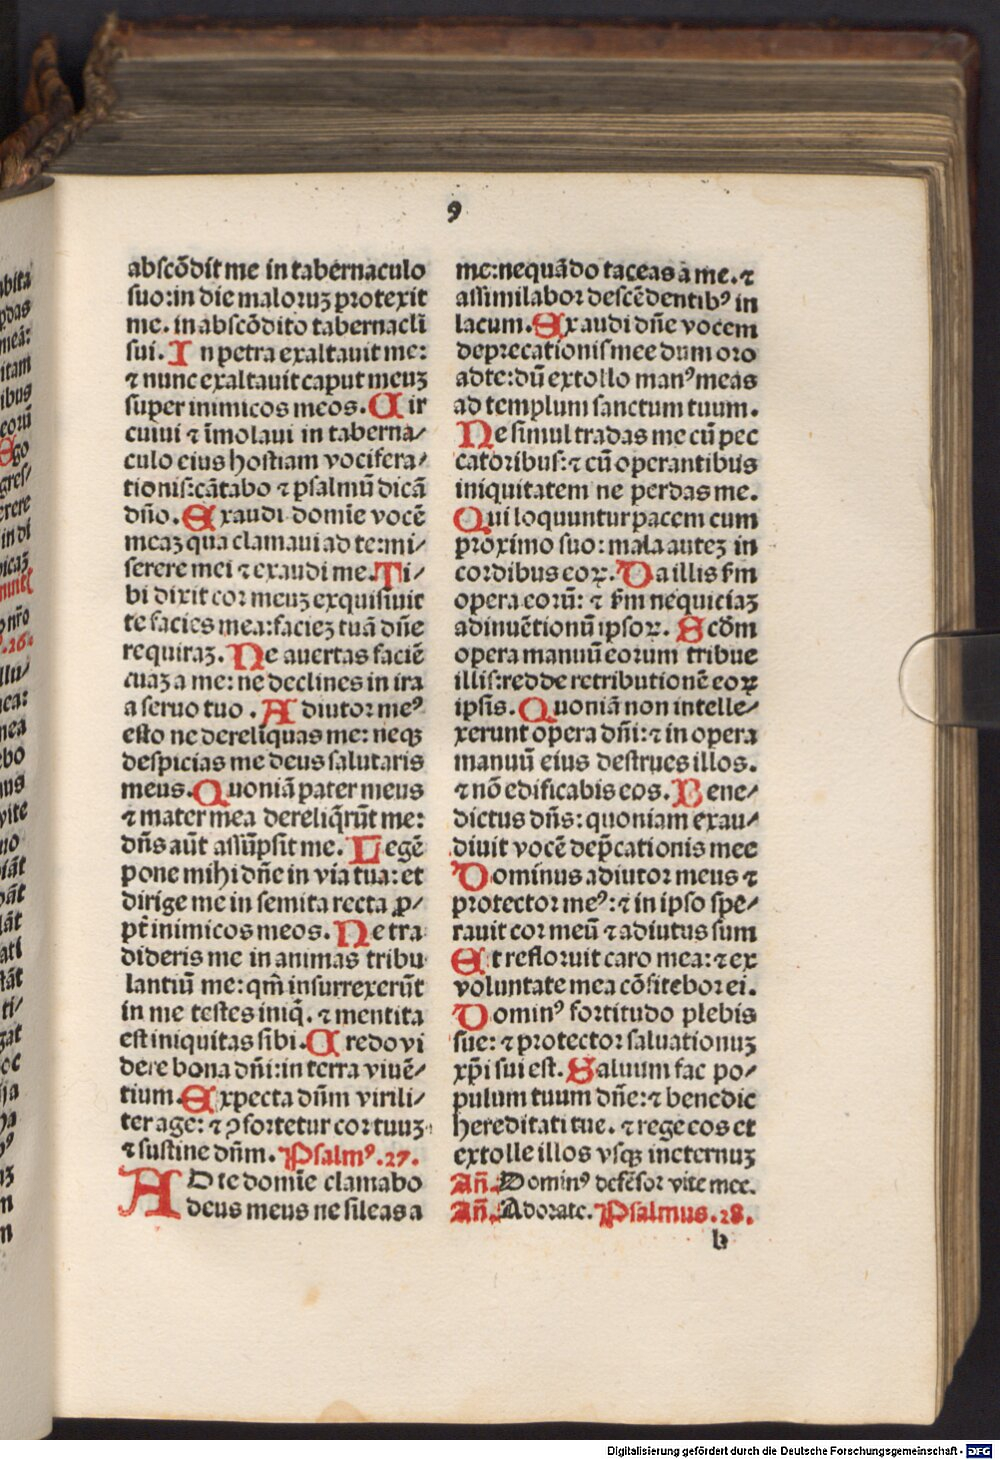 9
abscōdit me in tabernaculo
suo:in die maloruꝫ protexit
me. in abscōdito tabernacľi
sui. In petra exaltauit me:
⁊ nunc exaltauit caput meuꝫ
super inimicos meos. Cir
cuiui ⁊ īmolaui in taberna⸗
culo eius hostiam vocifera⸗
tionis:cātabo ⁊ psalmū dicā
dño. Exaudi domīe vocē
meaꝫ qua clamaui ad te:mi⸗
serere mei ⁊ exaudi me. Ti⸗
bi dixit cor meuꝫ exquisiuit
te facies mea:facieꝫ tuā dñe
requiraꝫ. Ne auertas faciē
tuaꝫ a me: ne declines in ira
a seruo tuo. Adiutor meꝰ
esto ne derelīquas me: neqꝫ
despicias me deus salutaris
meus. Quoniā pater meus
⁊ mater mea dereliq̄rūt me:
dñs aūt assūpsit me. Legē
pone mihi dñe in via tua: et
dirige me in semita recta ꝓ⸗
pt̄ inimicos meos. Ne tra
dideris me in animas tribu
lantiū me: qm̄ insurrexerūt
in me testes iniq̄. ⁊ mentita
est iniquitas sibi. Credo vi
dere bona dñi:in terra viuē⸗
tium. Expecta dñm virili⸗
ter age: ⁊ ꝯfortetur cor tuuꝫ
⁊ sustine dñm. Psalmꝰ .27.
AD te domīe clamabo
deus meus ne sileas a
me:nequādo taceas a me. ⁊
assimilabor descēdentibꝰ in
lacum. Exaudi dñe vocem
deprecationis mee dum oro
ad te:dū extollo manꝰ meas
ad templum sanctum tuum.
Ne simul tradas me cū pec
catoribus:⁊ cū operantibus
iniquitatem ne perdas me.
Qui loquuntur pacem cum
proximo suo: mala auteꝫ in
cordibus eoꝝ. Da illis ẜm
opera eorū: ⁊ ẜm nequiciaꝫ
adinuētionū ipsoꝝ. Scd̄m
opera manuū eorum tribue
illis:redde retributionē eoꝝ
ipsis. Quoniā non intelle⸗
xerunt opera dñi:⁊ in opera
manuū eius destrues illos.
⁊ nō edificabis eos. Bene⸗
dictus dñs: quoniam exau⸗
diuit vocē dep̄cationis mee
Dominus adiutor meus ⁊
protector meꝰ:⁊ in ipso spe⸗
rauit cor meū ⁊ adiutus sum
Et refloruit caro mea: ⁊ ex
voluntate mea cōfitebor ei.
Dominꝰ fortitudo plebis
sue: ⁊ protector saluationuꝫ
xp̄i sui est. Saluum fac po⸗
pulum tuum dñe:⁊ benedic
hereditati tue. ⁊ rege eos et
extolle illos vsqꝫ ineternuꝫ
Añ. Dominꝰ defēsor vite mee.
Añ. Adorate. Psalmus .28.
b
Digitalisierung gefördert durch die Deutsche Forschungsgemeinschaft - DFG